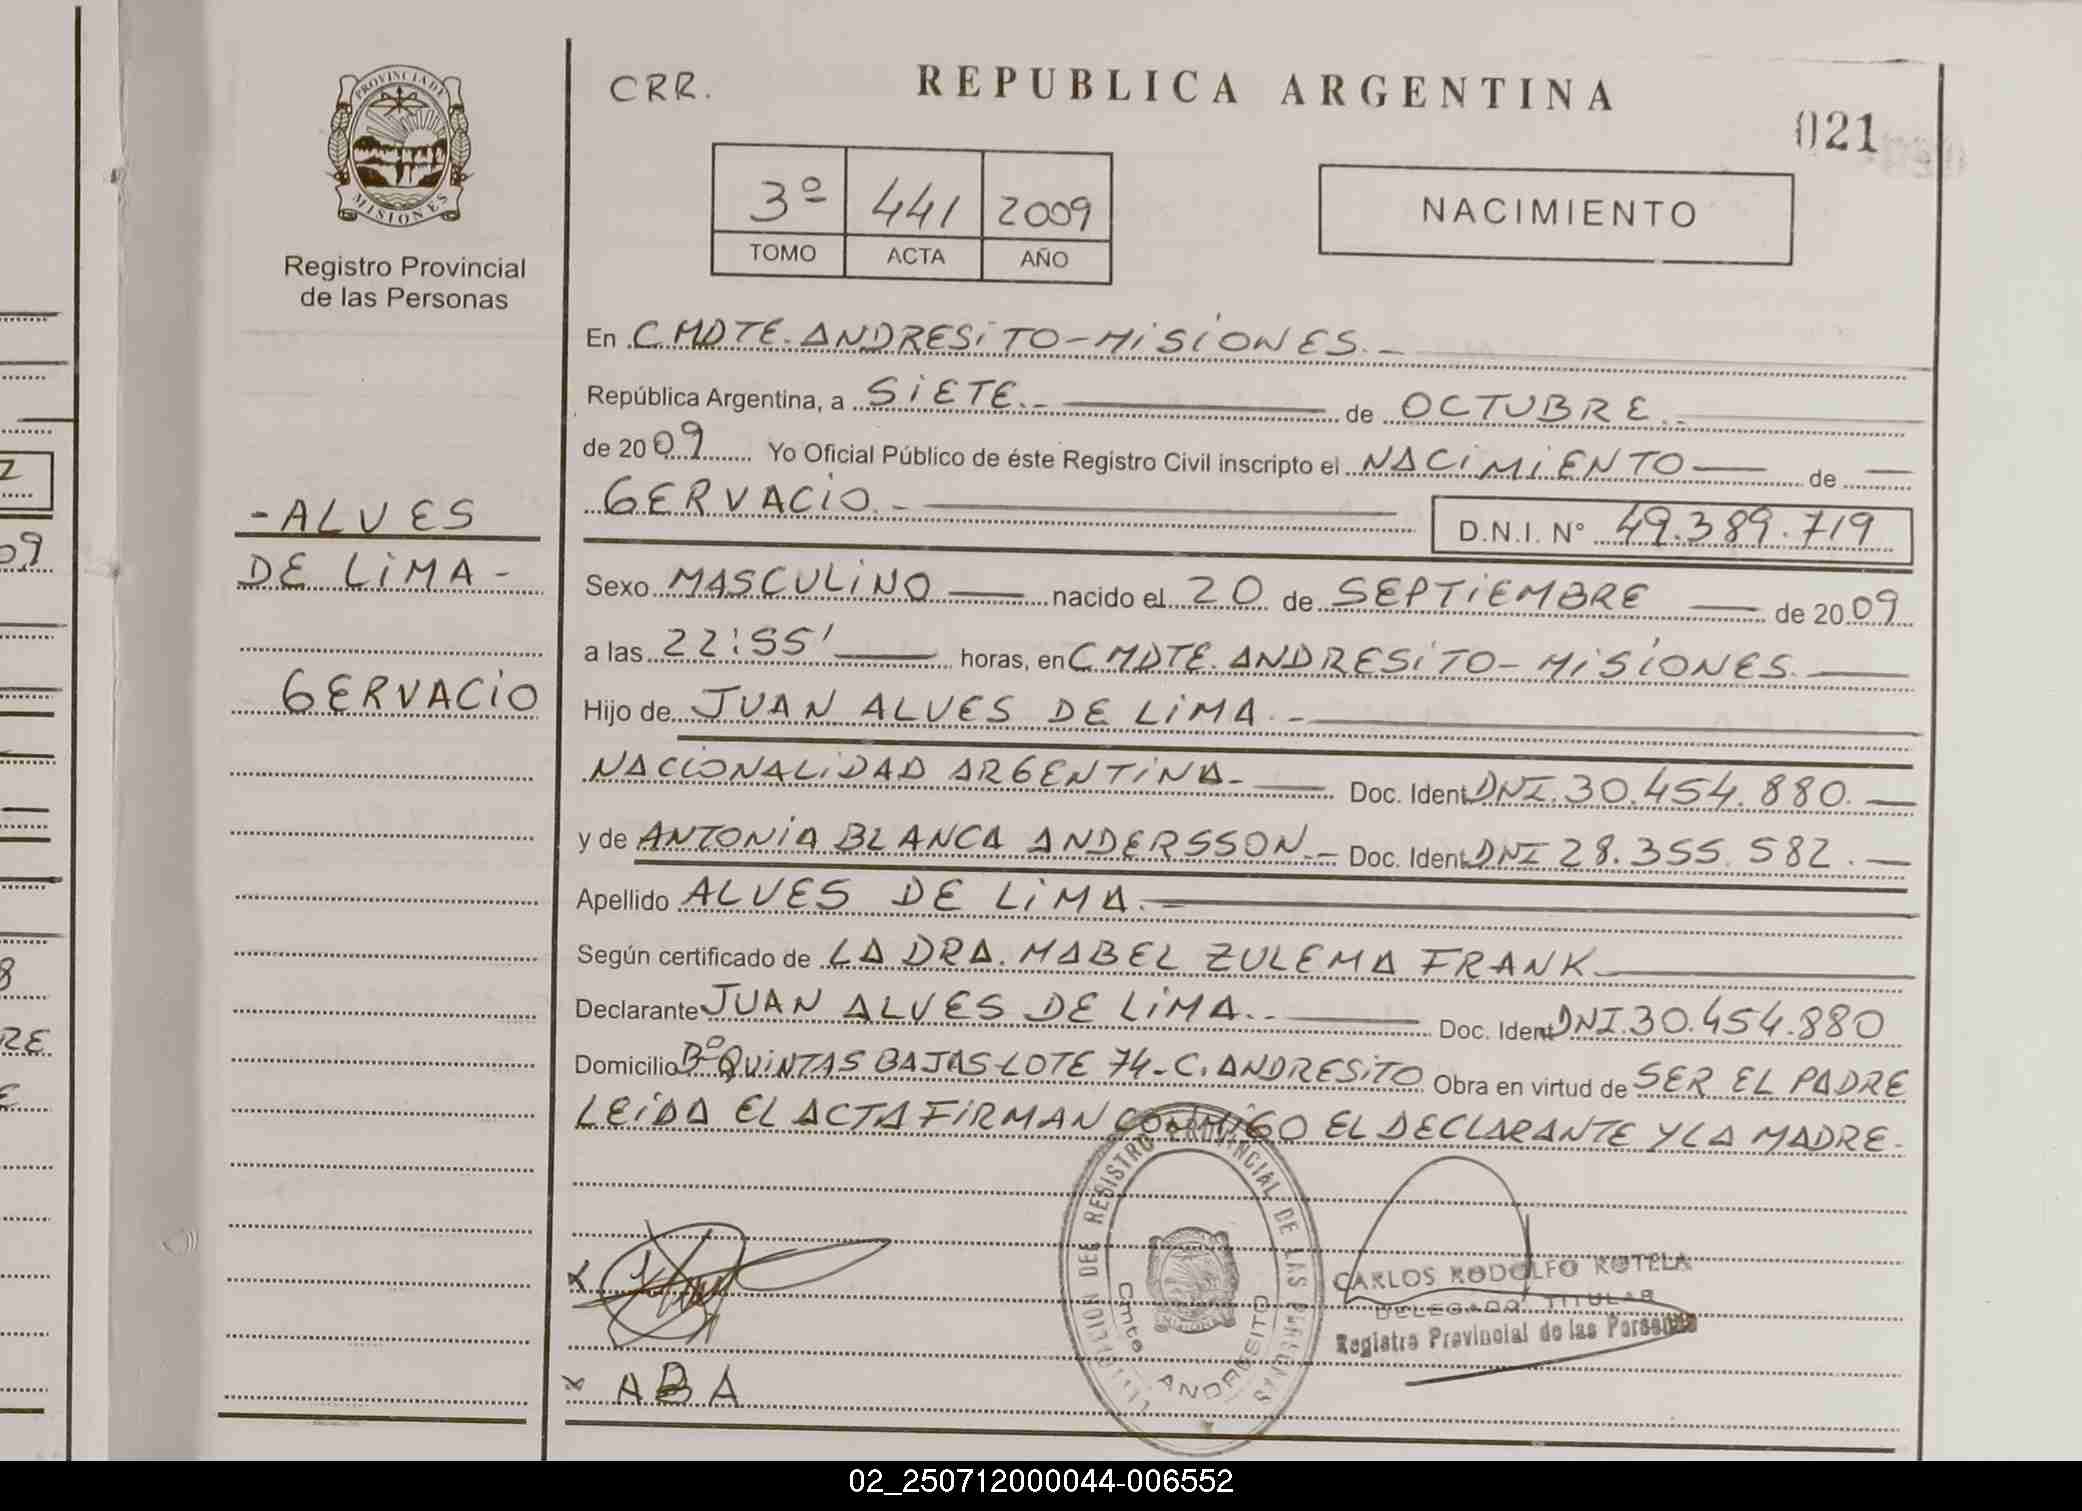 PROVINCIA DE
MISIONES
Registro Provincial
de las Personas
- ALVES
DE LIMA -
GERVACIO
CRR.
REPUBLICA ARGENTINA
021
3º 441 2009
TOMO ACTA AÑO
NACIMIENTO
En CMDTE. ANDRESITO - MISIONES. -
República Argentina, a SIETE. - de OCTUBRE. -
de 2009 Yo Oficial Público de éste Registro Civil inscripto el NACIMIENTO de
GERVACIO. -
D.N.I. N° 49.389.719
Sexo MASCULINO nacido el 20 de SEPTIEMBRE de 2009
a las 22:55' horas, en CMDTE. ANDRESITO - MISIONES.
Hijo de JUAN ALVES DE LIMA. -
NACIONALIDAD ARGENTINA - Doc. Ident DNI. 30.454.880. -
y de ANTONIA BLANCA ANDERSSON. - Doc. Ident DNI 28.355.582. -
Apellido ALVES DE LIMA. -
Según certificado de LA DRA. MABEL ZULEMA FRANK
Declarante JUAN ALVES DE LIMA. - Doc. Ident DNI. 30.454.880
Domicilio Bº QUINTAS BAJAS - LOTE 74 - C. ANDRESITO Obra en virtud de SER EL PADRE
LEIDA EL ACTA FIRMAN CONMIGO EL DECLARANTE Y LA MADRE -
REGISTRO PROVINCIAL DE LAS PERSONAS
Cmte ANDRESITO
CARLOS RODOLFO ROTELA
DELEGADO TITULAR
Registro Provincial de las Personas
x
x ABA
02_250712000044-006552